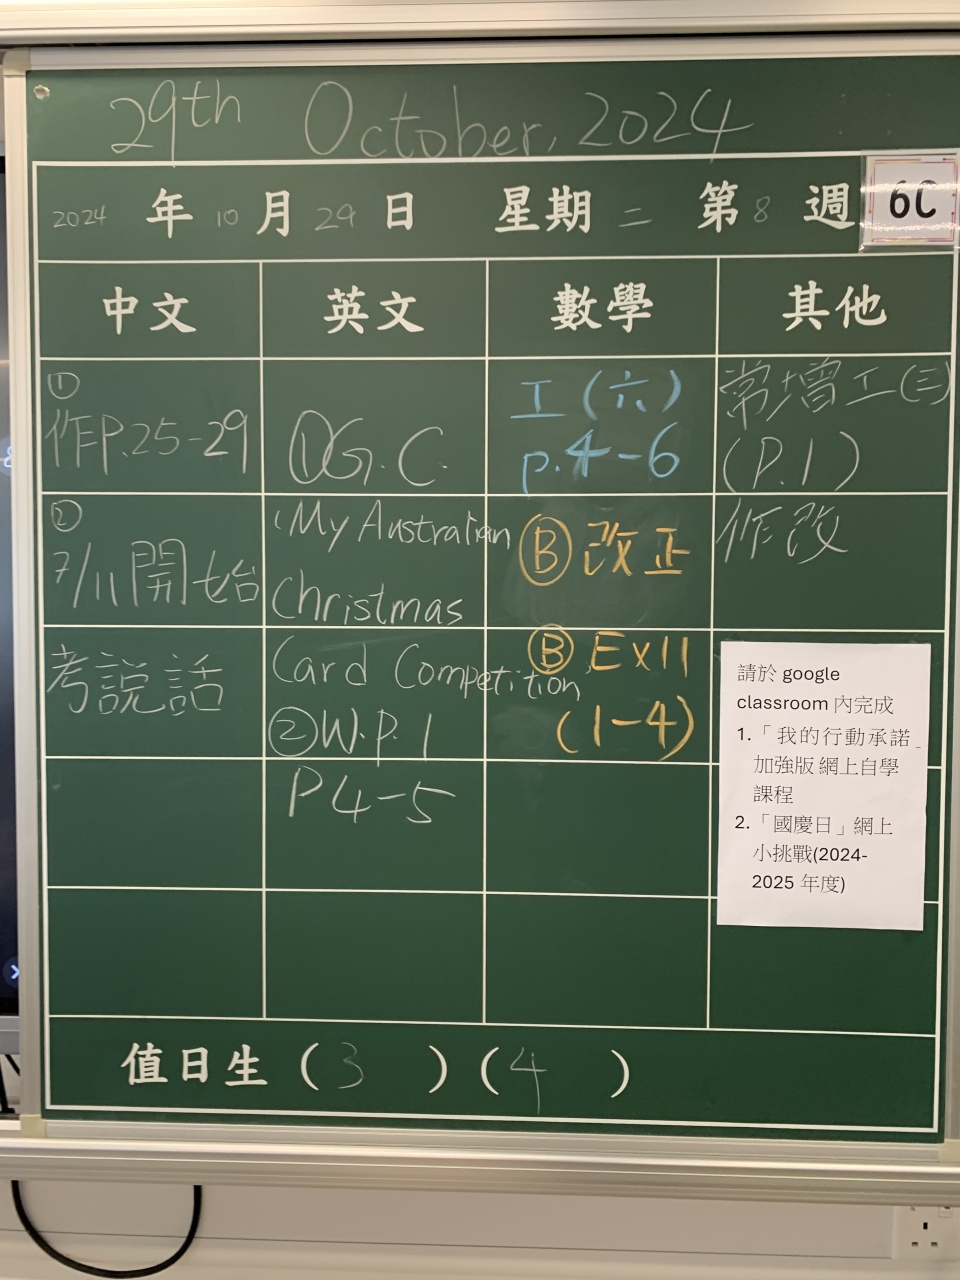 29th October, 2024
2024 年 10 月 29 日 星期 二 第 8 週 6C
中文 英文 數學 其他
①
作P.25-29
②
7/11開始
考說話
①G.C.
(My Australian
Christmas
Card Competition
②W.P.1
P4-5
工(六)
p.4-6
Ⓑ改正
Ⓑ Ex11
(1-4)
常增工(三)
(P.1)
作改
請於 google
classroom 內完成
1.「我的行動承諾」
加強版 網上自學
課程
2.「國慶日」網上
小挑戰(2024-
2025 年度)
值日生 (3) (4)